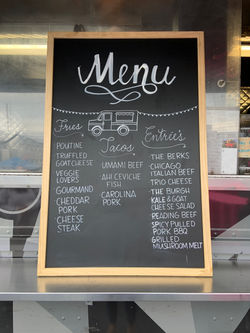 Menu
Fries
POUTINE
TRUFFLED
GOAT CHEESE
VEGGIE
LOVERS
GOURMAND
CHEDDAR
PORK
CHEESE
STEAK
Tacos
UMAMI BEEF
AHI CEVICHE
FISH
CAROLINA
PORK
Entrées
THE BERKS
CHICAGO
ITALIAN BEEF
TRIO CHEESE
THE BURGH
KALE & GOAT
CHEESE SALAD
READING BEEF
SPICY PULLED
PORK BBQ
GRILLED
MUSHROOM MELT